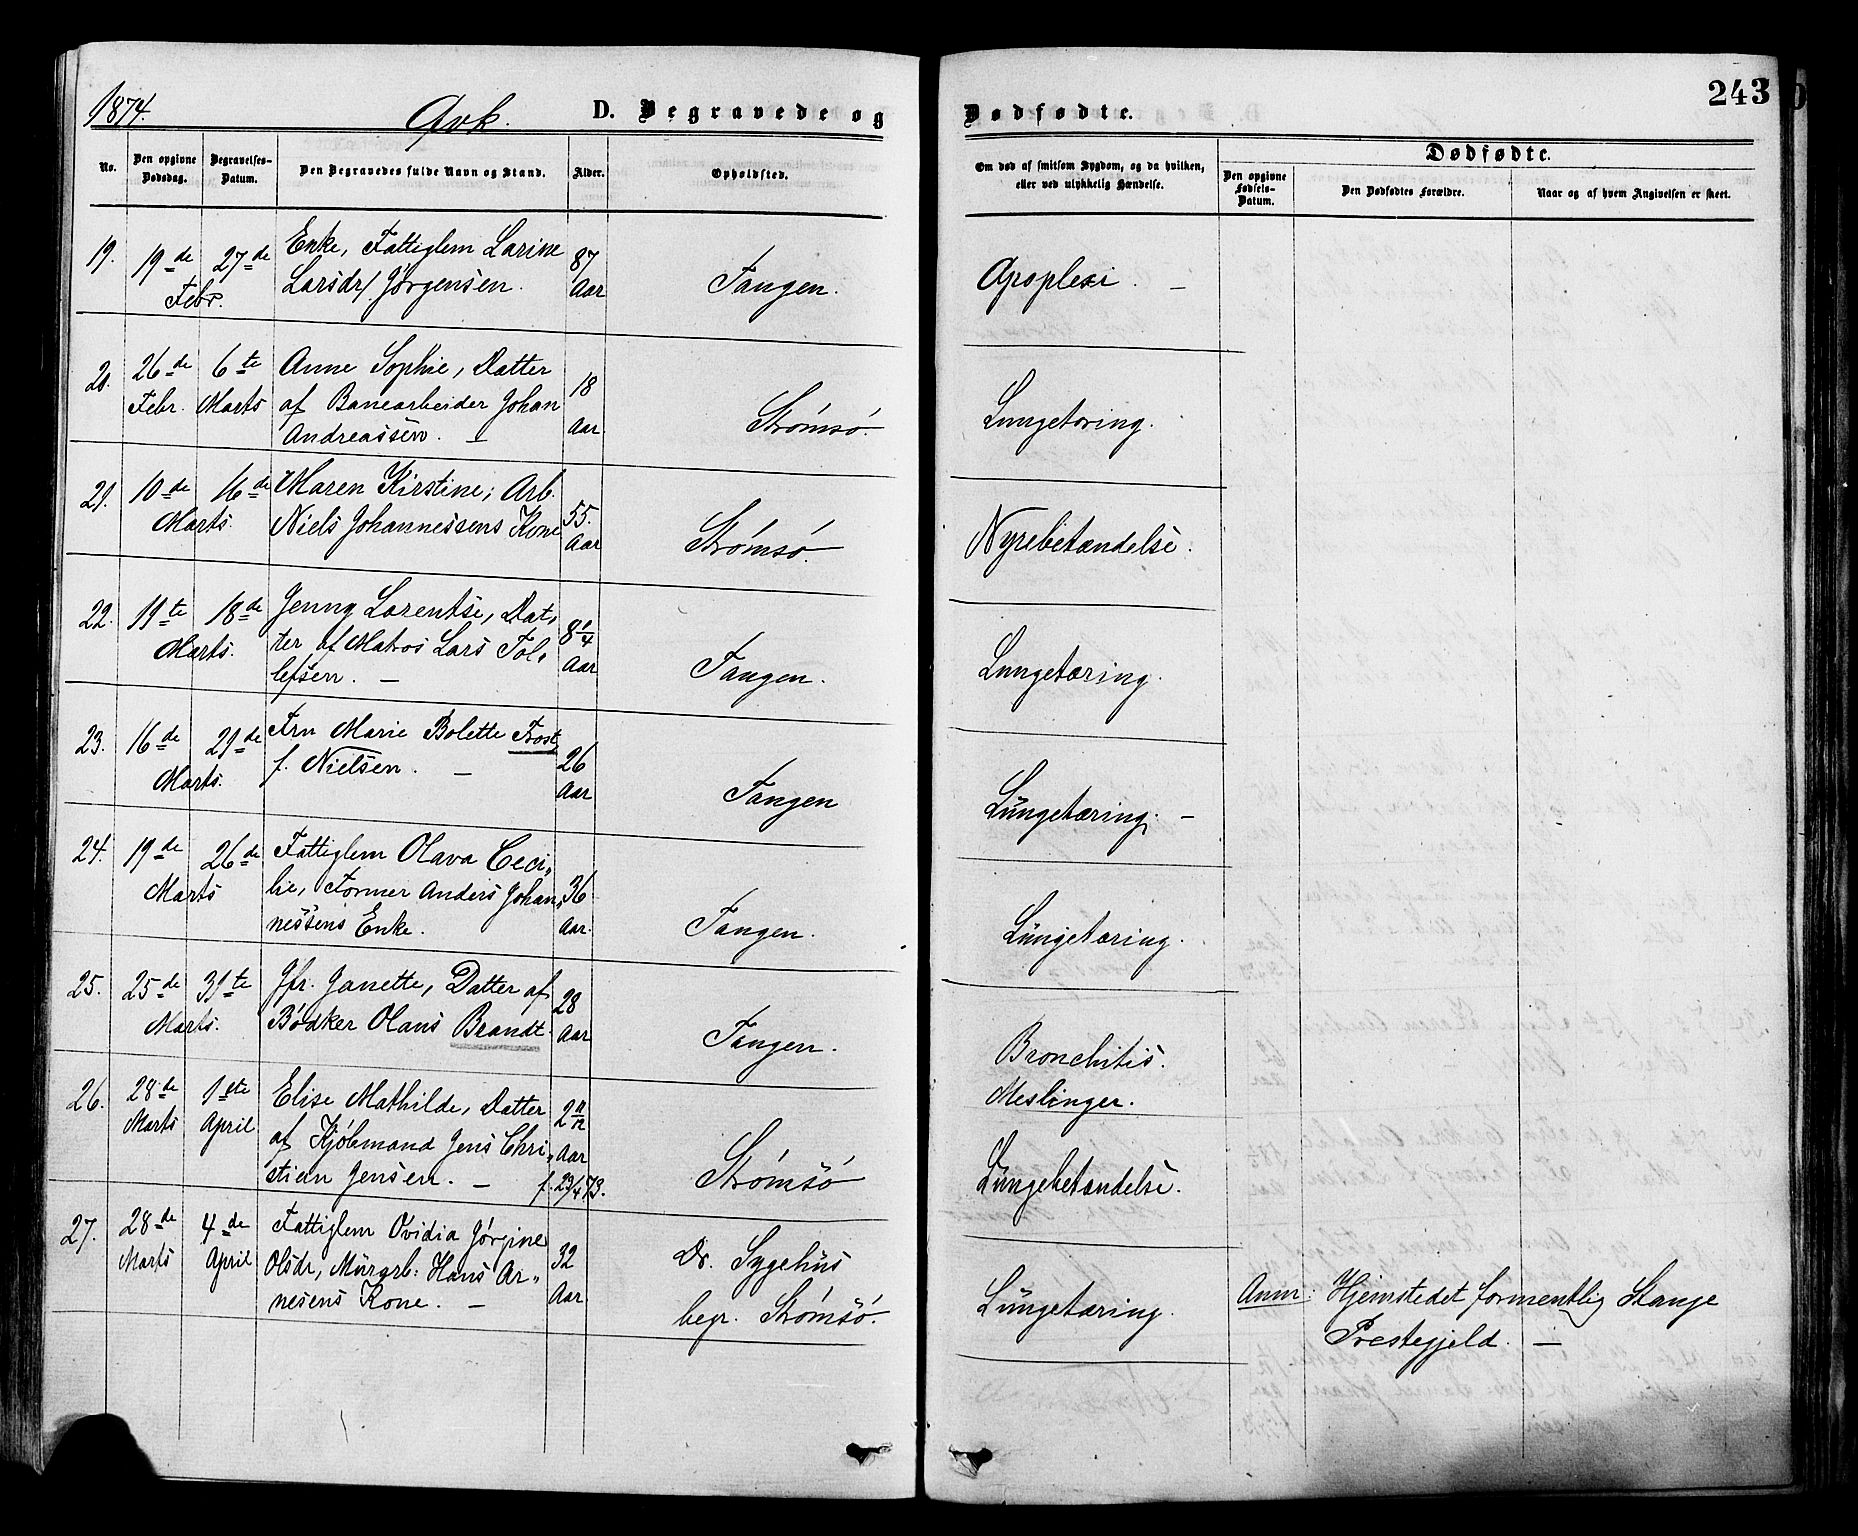 1874. Qvk. D. Begravede og Dødfødte. 243
No. Den opgivne Dødsdag. Begravelses-Datum. Den Begravedes fulde Navn og Stand. Alder. Opholdsted. Om død af smitsom Sygdom, og da hvilken, eller ved ulykkelig Hændelse.
Dødfødte.
Den opgivne Fødsels-Datum. Den Dødfødtes Forældre. Naar og af hvem Angivelsen er skeet.
19. 19de 27de Febr.
Enke, Fattiglem Larine
Larsdr/ Jørgensen.
87 Aar
Tangen.
Apoplexi. —
20. 26de Febr. 6te Marts
Anne Sophie, Datter
af Banearbeider Johan
Andreassen. —
18 Aar
Strømsø.
Lungetæring.
21. 10de 16de Marts.
Maren Kirstine, Arb.
Niels Johannessens Kone
55. Aar
Strømsø.
Nyrebetændelse.
22. 11te 18de Marts.
Jenny Lorentse, Dat„
ter af Matros Lars Tol„
lefsen. —
8 1/4 Aar
Tangen.
Lungetæring.
23. 16de 21de Marts.
Fru Marie Bolette Frost,
f. Nielsen. —
26 Aar
Tangen
Lungetæring. —
24. 19de 26de Marts
Fattiglem Olava Ceci„
lie, Former Anders Johan„
nessens Enke.
36 Aar.
Tangen.
Lungetæring.
25. 25de 31te Marts.
Jfr. Janette, Datter af
Bødker Olaus Brandt.
28 Aar
Tangen.
Bronchitis.
Meslinger.
26. 28de Marts 1ste April
Elise Mathilde, Datter
af Kjøbmand Jens Chri„
stian Jensen. —
2 11/12 Aar
f. 29/4 73.
Strømsø
Lungebetændelse.
27. 28de Marts 4de April
Fattiglem Ovidia Jørgine
Olsdr, Murarb: Hans Ar„
nesens Kone. —
32 Aar
Dr. Sygehus
begr. Strømsø.
Lungetæring.
Anm: Hjemstedet formentlig Stange
Prestegjeld. —